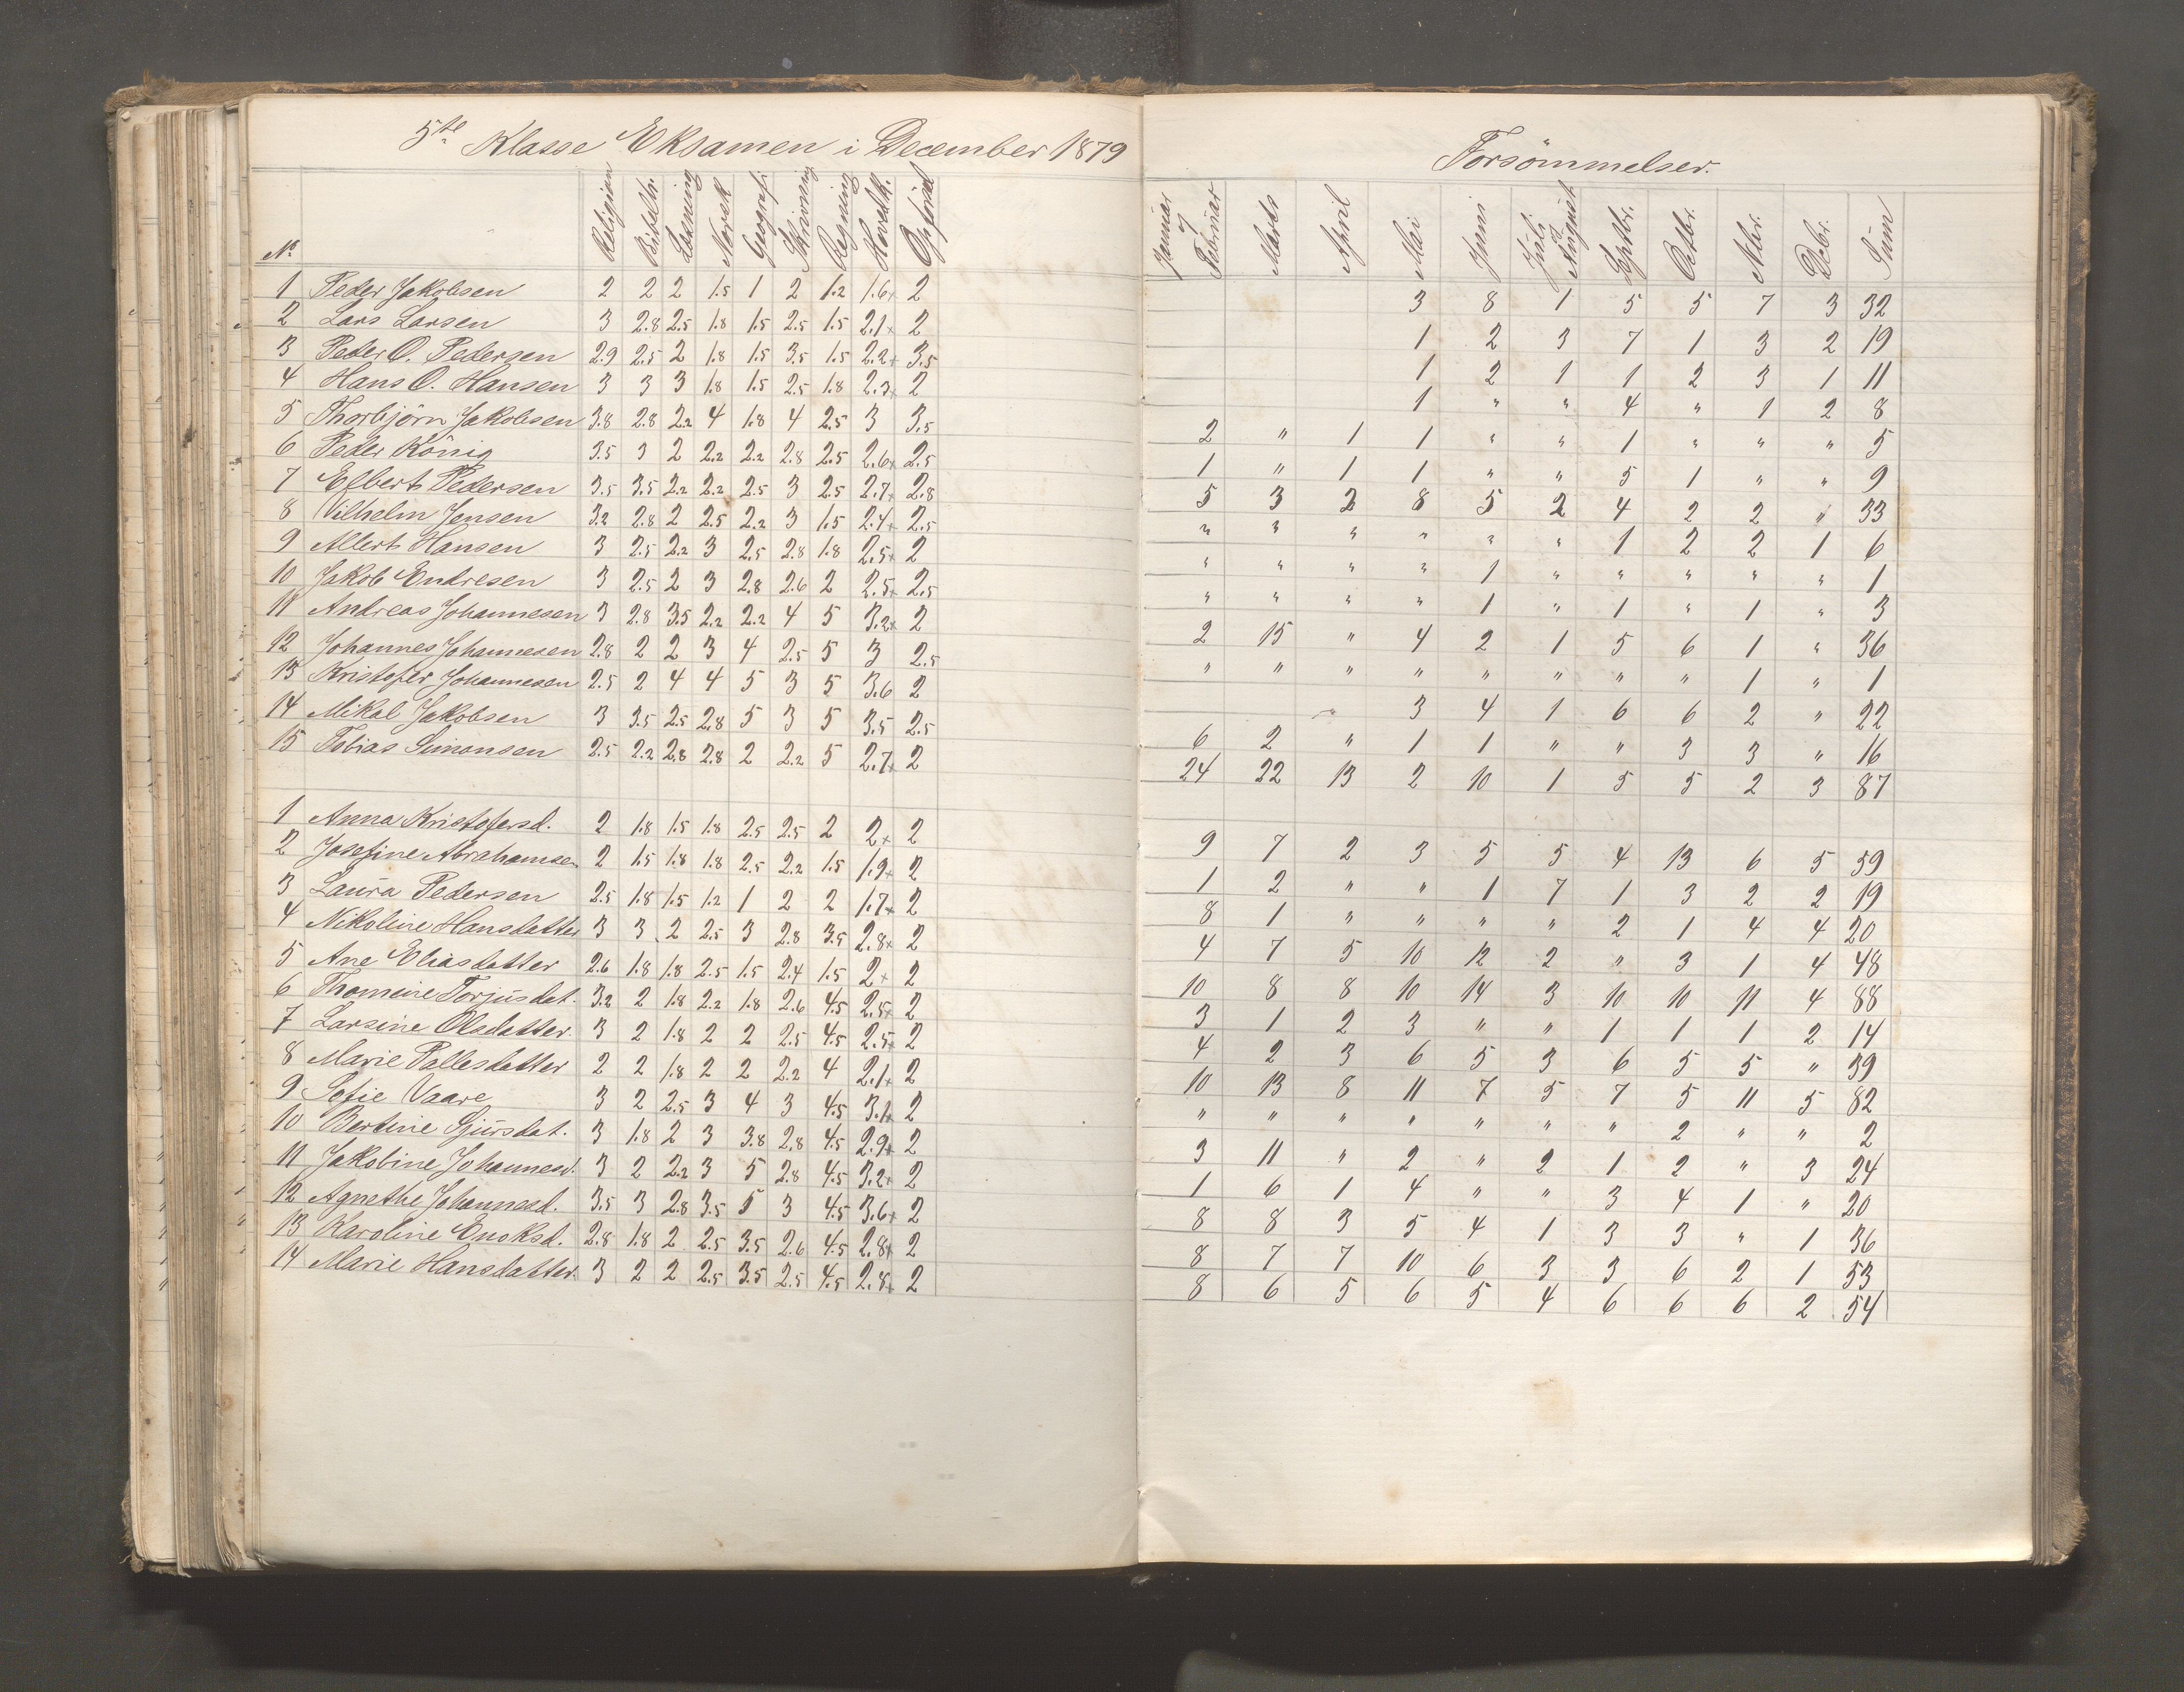 5te Klasse Eksamen i December 1879
No Religion Bibelh. Læsning Norsk Geografi Skrivning Regning Hovedk. Opförsel
1 Peder Jakobsen 2 2 2 1.5 1 2 1.2 1.6+ 2
2 Lars Larsen 3 2.8 2.5 1.8 1.5 2.5 1.5 2.1+ 2
3 Peder O. Pedersen 2.9 2.5 2 1.8 1.5 3.5 1.5 2.2+ 3.5
4 Hans O. Hansen 3 3 3 1.8 1.5 2.5 1.8 2.3+ 2
5 Thorbjörn Jakobsen 3.8 2.8 2.2 4 1.8 4 2.5 3 3.5
6 Peder König 3.5 3 2 2.2 2.2 2.8 2.5 2.6+ 2.5
7 Elbert Pedersen 3.5 3.5 2.2 2.2 2.5 3 2.5 2.7+ 2.8
8 Vilhelm Jensen 3.2 2.8 2 2.5 2.2 3 1.5 2.4+ 2.5
9 Albert Hansen 3 2.5 2.2 3 2.5 2.8 1.8 2.5+ 2
10 Jakob Endresen 3 2.5 2 3 2.8 2.6 2 2.5+ 2.5
11 Andreas Johannesen 3 2.8 3.5 2.2 2.2 4 5 3.2+ 2
12 Johannes Johannesen 2.8 2 2 3 4 2.5 5 3 2.5
13 Kristofer Johannesen 2.5 2 4 4 5 3 5 3.6 2
14 Mikal Jakobsen 3 3.5 2.5 2.8 5 3 5 3.5 2.5
15 Tobias Simonsen 2.5 2.2 2.8 2.8 2 2.2 5 2.7+ 2
1 Anna Kristofersd. 2 1.8 1.5 1.8 2.5 2.5 2 2+ 2
2 Josefine Abrahamsen 2 1.5 1.8 1.8 2.5 2.2 1.5 1.9+ 2
3 Laura Pedersen 2.5 1.8 1.5 1.2 1 2 2 1.7+ 2
4 Nikoline Hansdatter 3 3 2 2.5 3 2.8 3.5 2.8+ 2
5 Ane Eliasdatter 2.6 1.8 1.8 2.5 1.5 2.4 1.5 2+ 2
6 Thomine Torjusdat. 3.2 2 1.8 2.2 1.8 2.6 4.5 2.5+ 2
7 Larsine Olsdatter. 3 2 1.8 2 2 2.5 4.5 2.5+ 2
8 Marie Pallesdatter 2 2 1.8 2 2 2.2 4 2.1+ 2
9 Sofie Vaare 3 2 2.5 3 4 3 4.5 3.1+ 2
10 Bertine Sjursdat. 3 1.8 2 3 3.8 2.8 4.5 2.9+ 2
11 Jakobine Johannesd. 3 2 2.2 3 5 2.8 4.5 3.2+ 2
12 Agnethe Johannesd. 3.5 3 2.8 3.5 5 3 4.5 3.6+ 2
13 Karoline Enoksd. 2.8 1.8 2 2.5 3.5 2.6 4.5 2.8+ 2
14 Marie Hansdatter. 3 2 2 2.5 3.5 2.5 4.5 2.8+ 2
Forsömmelser.
Januar & Februar Marts April Mai Juni Juli & August Septbr. Octbr. Nbr. Debr. Sum
3 8 1 5 5 7 3 32
1 2 3 7 1 3 2 19
1 2 1 1 2 3 1 11
1 " " 4 " 1 2 8
2 " 1 1 " " 1 " " " 5
1 " 1 1 " " 5 1 " " 9
5 3 2 8 5 2 4 2 2 " 33
" " " " " " 1 2 2 1 6
" " " " 1 " " " " " 1
" " " " 1 " 1 " 1 " 3
2 15 " 4 2 1 5 6 1 " 36
" " " " " " " " 1 " 1
3 4 1 6 6 2 " 22
6 2 " 1 1 " " 3 3 " 16
24 22 13 2 10 1 5 5 2 3 87
9 7 2 3 5 5 4 13 6 5 59
1 2 " " 1 7 1 3 2 2 19
8 1 " " " " 2 1 4 4 20
4 7 5 10 12 2 " 3 1 4 48
10 8 8 10 14 3 10 10 11 4 88
3 1 2 3 " " 1 1 1 2 14
4 2 3 6 5 3 6 5 5 " 39
10 13 8 11 7 5 7 5 11 5 82
" " " " " " " 2 " " 2
3 11 " 2 " 2 1 2 " 3 24
1 6 1 4 " " 3 4 1 " 20
8 8 3 5 4 1 3 3 " 1 36
8 7 7 10 6 3 3 6 2 1 53
8 6 5 6 5 4 6 6 6 2 54